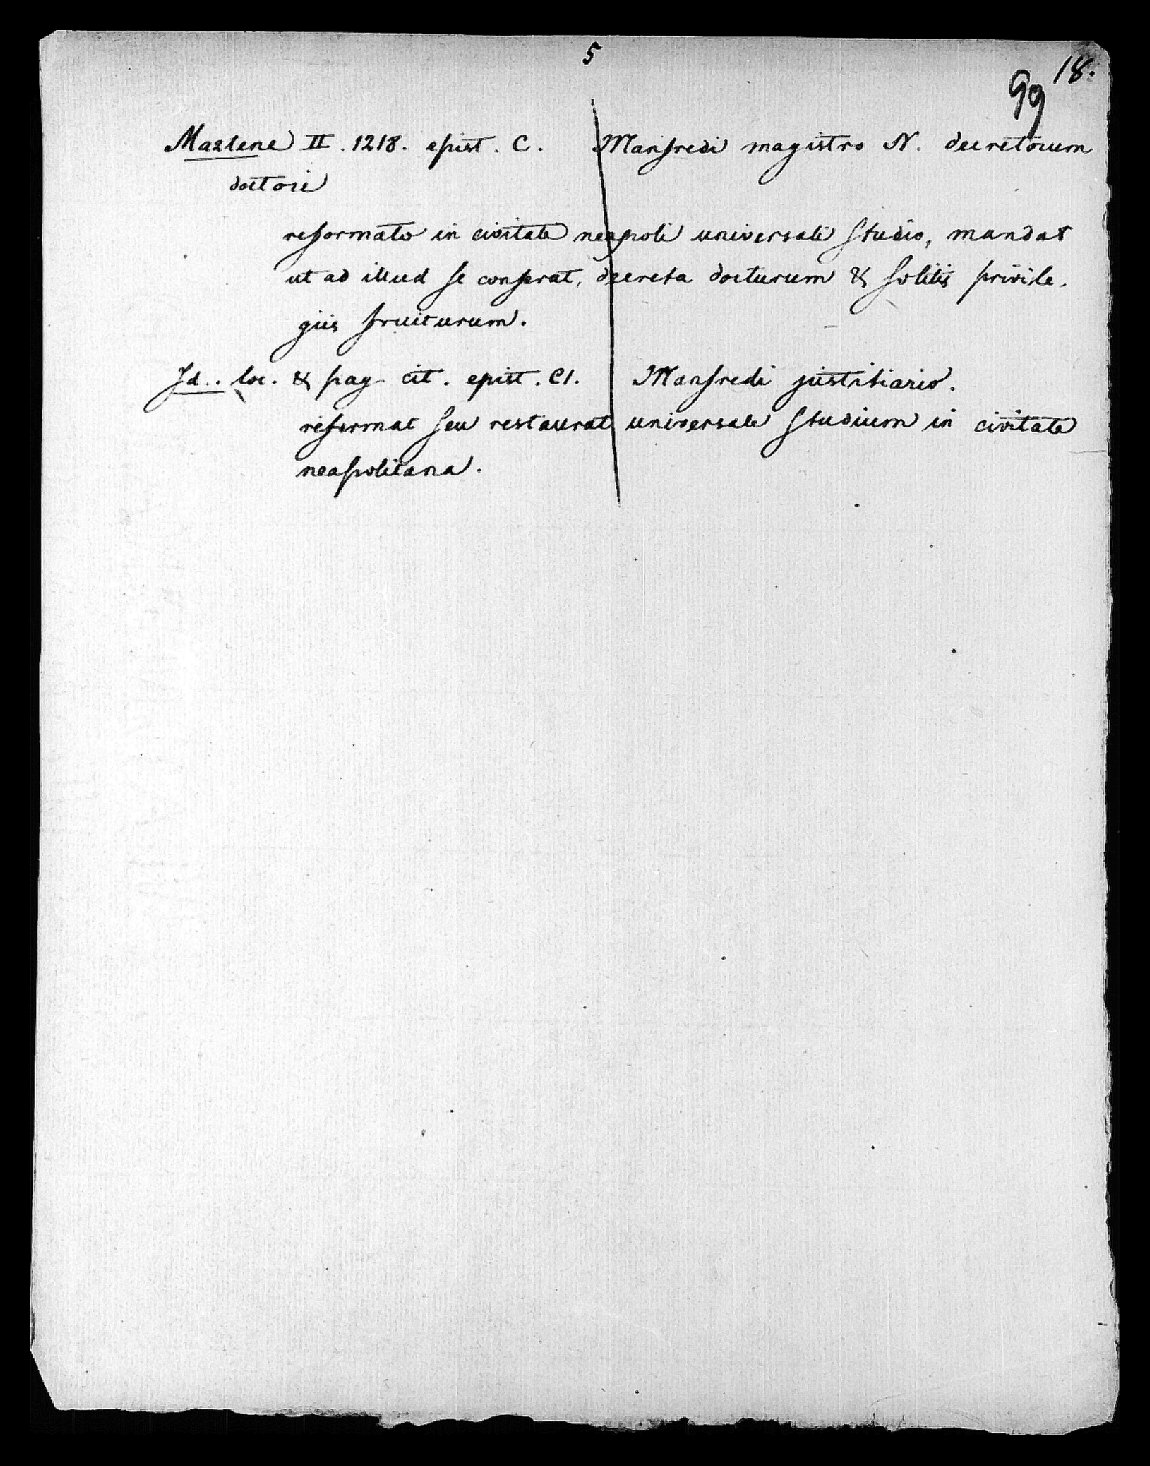 5
18.
99
Martene II. 1218. epist. C. Manfredi magistro N. decretorum
doctori
reformato in civitate neapoli universali studio, mandat
ut ad illud se conferat, decreta docturum & solitis privile-
giis fruiturum.
Id.. loc. & pag. cit. epist. CI. Manfredi justitiario.
reformat seu restaurat universale studium in civitate
neapolitana.